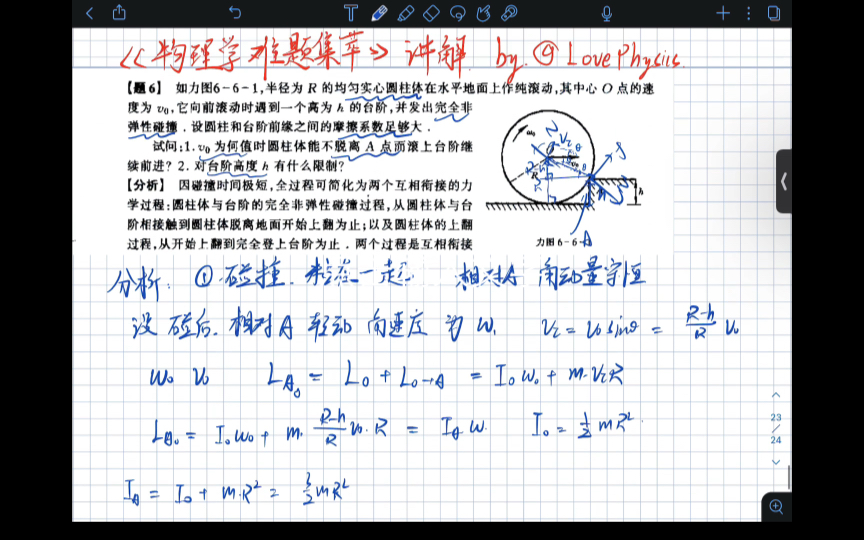 《物理学难题集萃》讲解 by @LovePhysics
【题6】 如力图6-6-1,半径为 R 的均匀实心圆柱体在水平地面上作纯滚动,其中心 O 点的速
度为 v₀,它向前滚动时遇到一个高为 h 的台阶,并发出完全非
弹性碰撞．设圆柱和台阶前缘之间的摩擦系数足够大．
试问:1. v₀ 为何值时圆柱体能不脱离 A 点而滚上台阶继
续前进? 2. 对台阶高度 h 有什么限制?
【分析】 因碰撞时间极短,全过程可简化为两个互相衔接的力
学过程:圆柱体与台阶的完全非弹性碰撞过程,从圆柱体与台
阶相接触到圆柱体脱离地面开始上翻为止;以及圆柱体的上翻
过程,从开始上翻到完全登上台阶为止．两个过程是互相衔接
ω₀
R
h
A
力图6-6-
分析: ① 碰撞. 粘在一起 相对A 角动量守恒
设 碰后 相对A 转动 角速度 为 ω. v₂ = v₀ sinθ = (R-h)/R v₀
ω₀ v₀ L_A₀ = L₀ + L₀→A = I₀ω₀ + m·v₂R
L_A₀ = I₀ω₀ + m· (R-h)/R v₀·R = I_A ω. I₀ = ½ mR².
I_A = I₀ + m·R² = 3/2 mR²
23
/
24